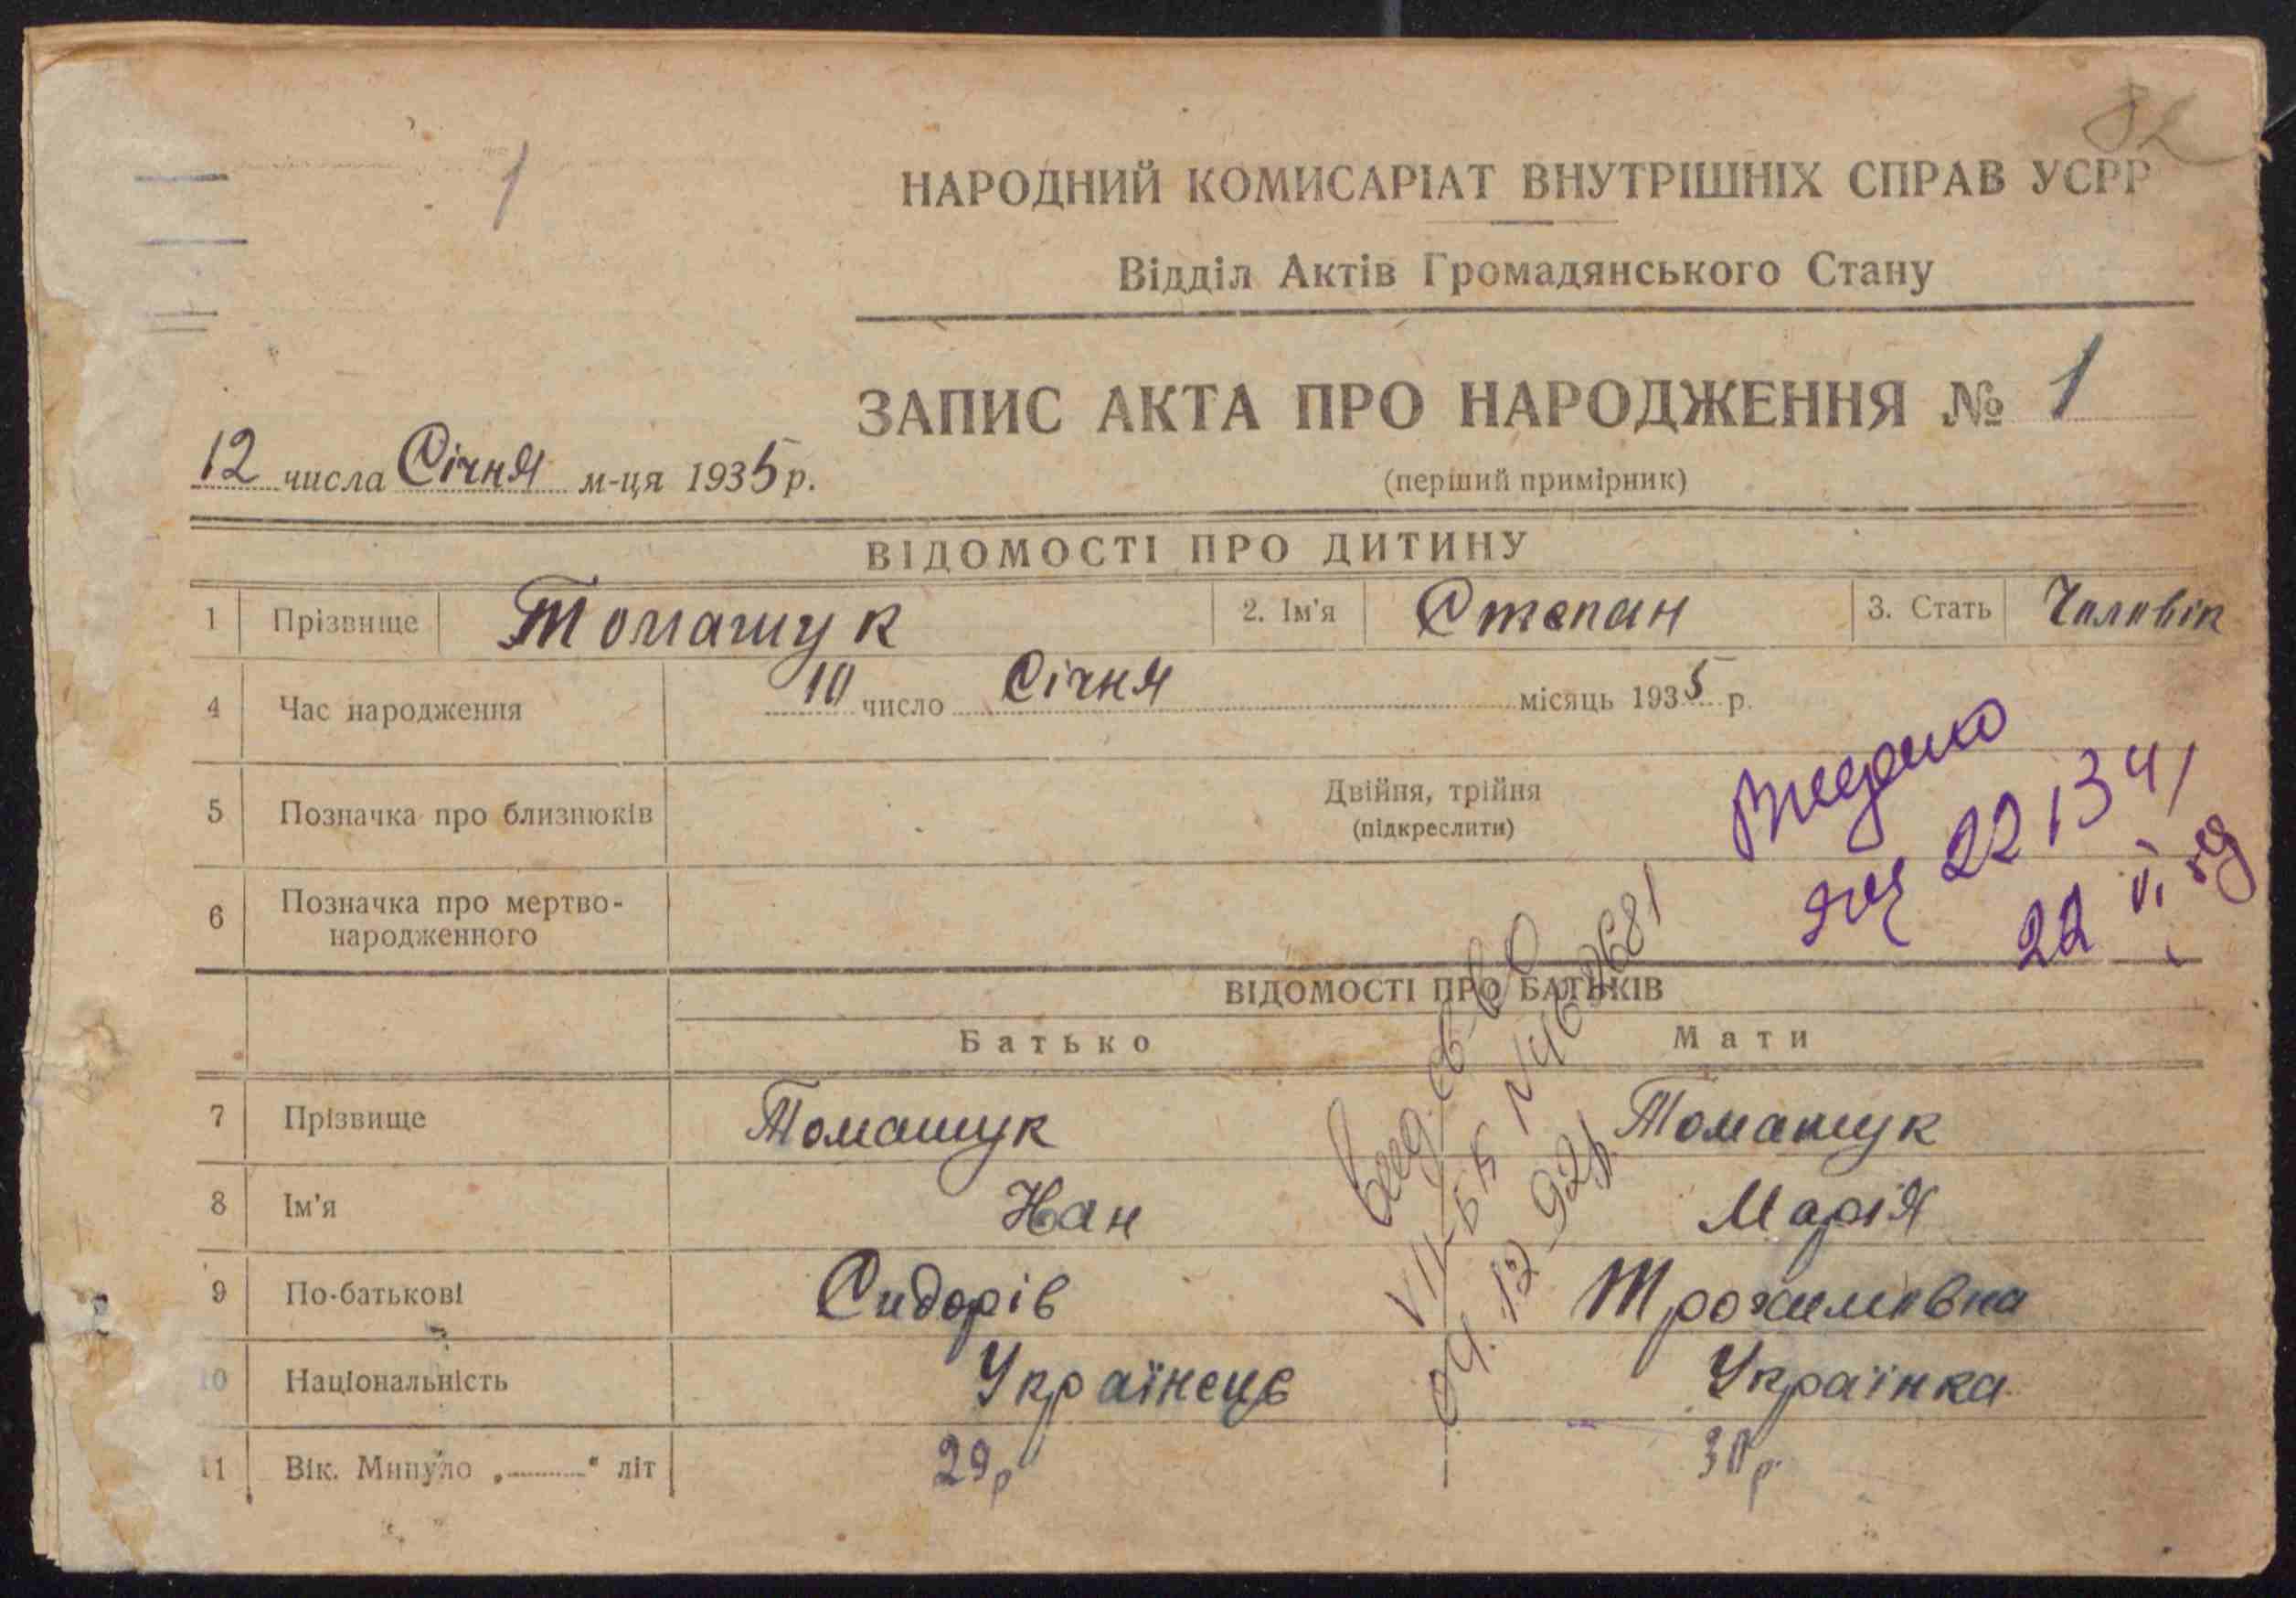 82
1
НАРОДНИЙ КОМИСАРІАТ ВНУТРІШНІХ СПРАВ УСРР
Відділ Актів Громадянського Стану
ЗАПИС АКТА ПРО НАРОДЖЕННЯ № 1
(перший примірник)
12 числа Січня м-ця 1935 р.
ВІДОМОСТІ ПРО ДИТИНУ
1 Прізвище Томашук 2. Ім'я Степан 3. Стать Чоловік
4 Час народження 10 число Січня місяць 1935 р.
5 Позначка про близнюків Двійня, трійня
(підкреслити)
6 Позначка про мертво-
народженного
22 13 41
22 VI
ВІДОМОСТІ ПРО БАТЬКІВ
Батько Мати
7 Прізвище Томашук Томашук
8 Ім'я Іван Марія
9 По-батькові Сидорів Трохимовна
10 Національність Українець Українка
11 Вік. Минуло „ “ літ 29 р 30 р.
VII-БК № 629681
04.12.92р.